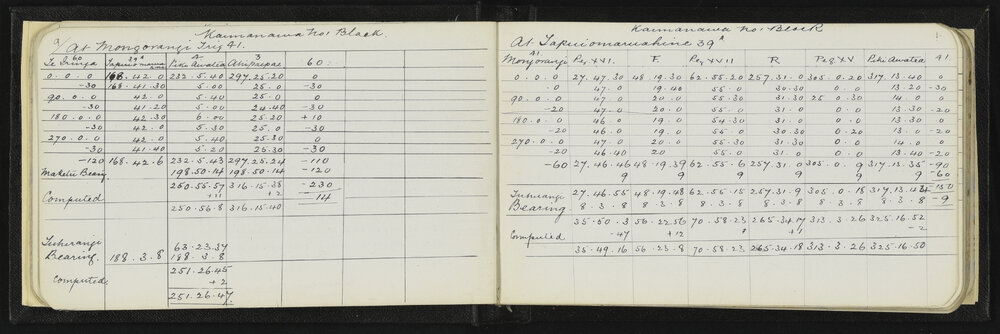 9/ Kaimanawa No 1 Block.
At Mongorangi Trig 41.
To 60 39A A 3 60:
Tapuiomarua Piki Awatea
0 . 0 . 0 168. 42. 0 232. 5. 40 297. 25. 20 0
-30 168. 41. 30 5. 00 25. 0 -30
90. 0. 0 42. 0 5. 40 25. 0 0
-30 41. 20 5. 00 24. 40 -30
180. 0. 0 42. 30 6. 00 25. 20 +10
-30 42. 0 5. 30 25. 0 -30
270. 0. 0 42. 0 5. 40 25. 30 0
-30 41. 40 5. 20 25. 30 -30
-120 168. 42. 6 232. 5. 43 297. 25. 24 -110
198. 50. 14 198. 50. 14 -120
250. 55. 57 316. 15. 38 -230
Computed +11 +2 14
250. 56. 8 316. 15. 40
Tuhirangi 63. 23. 37
Bearing. 188. 3. 8 188. 3. 8
251. 26. 45
Computed. +2
251. 26. 47
Kaimanawa No 1 Block
At Tapuiomaruahine 39A
41
Mongorangi Peg XVI. F. Peg XVII R Peg XV Piki Awatea 41
0. 0. 0 27. 47. 30 48. 19. 30 62. 55. 20 257. 31. 0 305. 0. 20 317. 13. 40 0
. 0 47. 0 19. 40 55. 0 30. 30 0. 0 13. 20 -30
90. 0. 0 47. 0 20. 0 55. 30 31. 30 25 0. 30 14. 0 0
-20 47. 0 20. 0 55. 0 31. 0 0. 0 13. 0 -20
180. 0. 0 46. 0 19. 0 54. 30 31. 0 0. 0 13. 0 0
-20 46. 0 19. 0 55. 0 30. 30 0. 20 13. 0 -20
270. 0. 0 47. 0 20. 0 55. 30 31. 0 0. 30 14. 0 0
-20 46. 40 20. 0 55. 0 31. 0 0. 0 13. 40 -20
-60 27. 46. 46 48. 19. 39 62. 55. 6 257. 31. 0 305. 0. 9 317. 13. 35 -90
9 9 9 9 9 9 -60
Tuhirangi 27. 46. 55 48. 19. 48 62. 55. 15 257. 31. 9 305. 0. 18 317. 13. 44 -150
Bearing 8. 3. 8 8. 3. 8 8. 3. 8 8. 3. 8 8. 3. 8 8. 3. 8 -9
35. 50. 3 56. 22. 56 70. 58. 23 265. 34. 17 313. 3. 26 325. 16. 52
Computed -47 +12 +1 -2
35. 49. 16 56. 23. 8 70. 58. 23 265. 34. 18 313. 3. 26 325. 16. 50